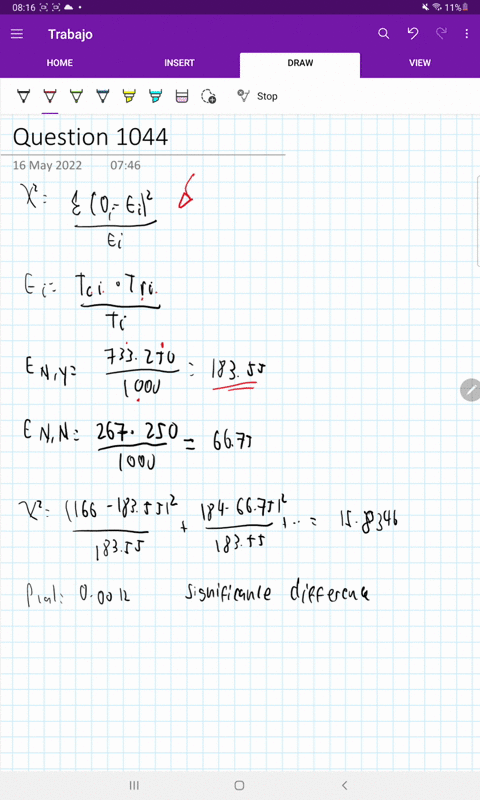 08:16 11%
Trabajo
HOME INSERT DRAW VIEW
Stop
Question 1044
16 May 2022 07:46
χ² = Σ(Oi - Ei)² / Ei
Ei = Tci · Tri / Ti
E N,Y = 733.250 / 1000 = 183.55
E N,N = 267.250 / 1000 = 66.75
χ² = (166 - 183.55)² / 183.55 + (84 - 66.75)² / 183.55 + ... = 15.8346
Pval: 0.0012 significance difference